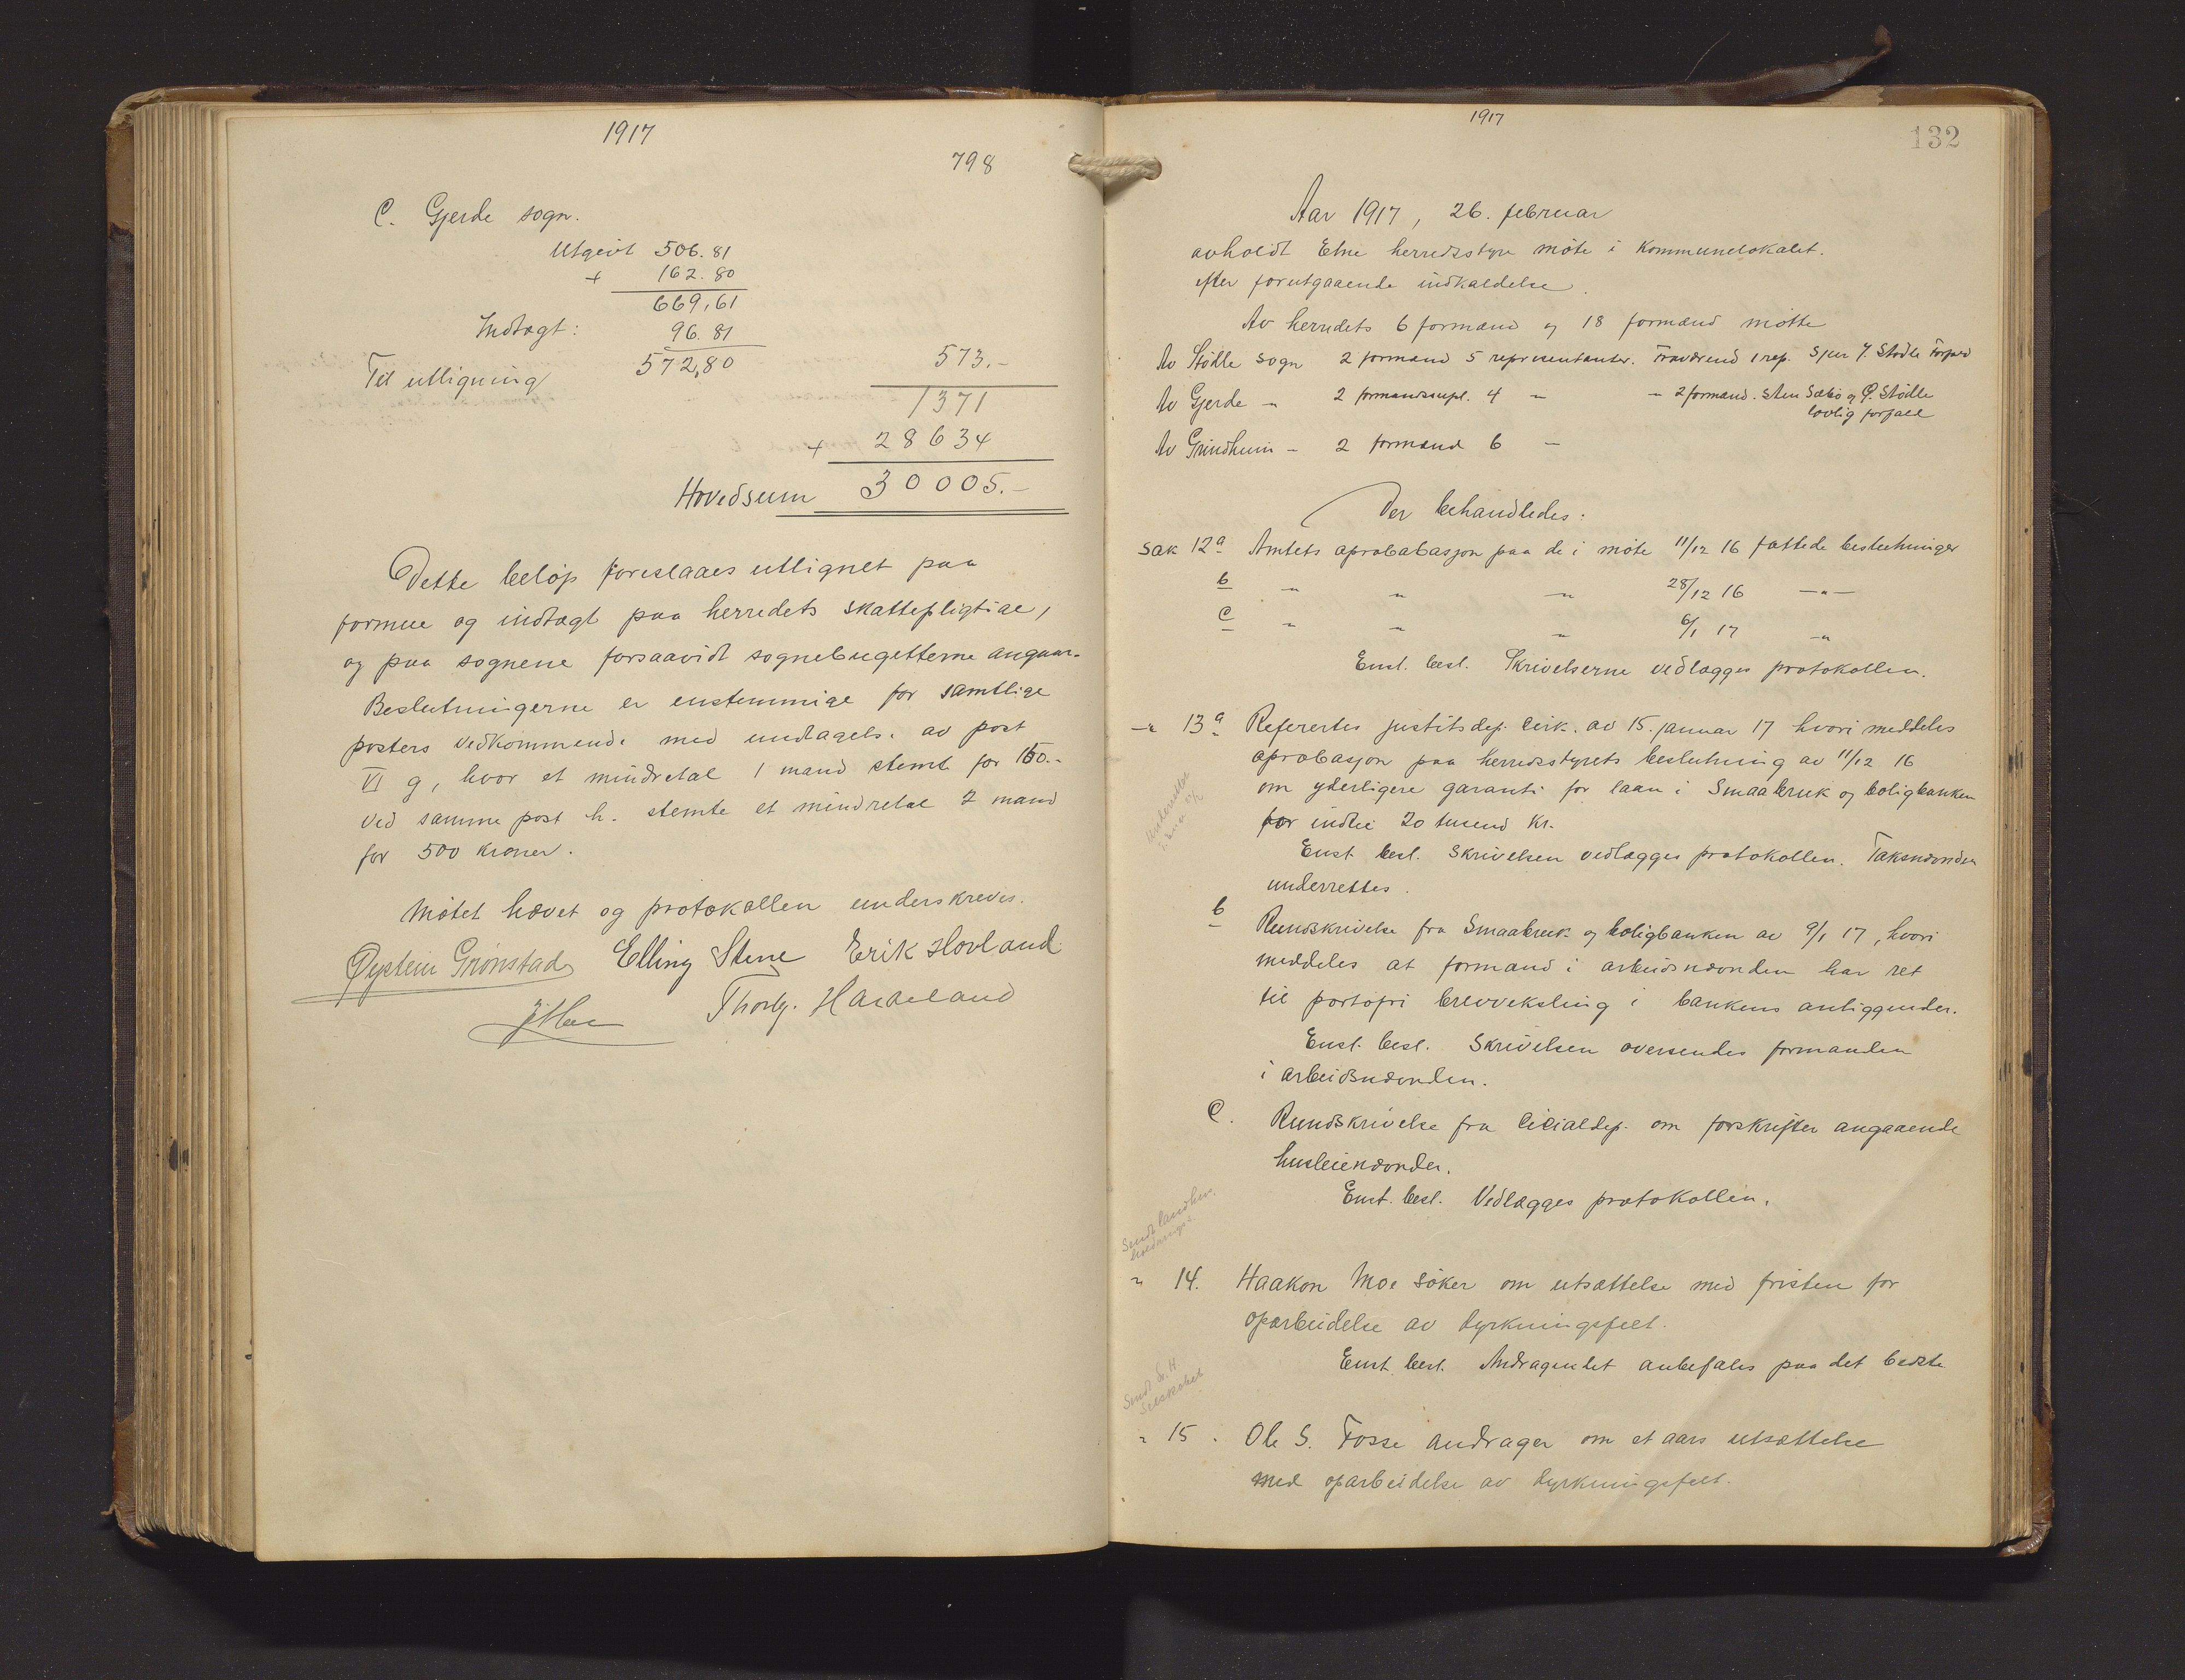 1917
798
C. Gjerde sogn.
Utgivt 506.81
+ 162.80
669,61
Indtægt: 96.81
Til utligning 572,80 573.-
1371
+ 28634
Hovedsum 30005.-
Dette beløp foreslaaes utlignet paa
formue og indtægt paa herredets skattepligtige,
og paa sognene forsaavidt sognebugetterne angaar.
Beslutningerne er enstemmige for samtlige
posters vedkommende med undtagelse av post
VI g, hvor et mindretal 1 mand stemte for 150.-
Ved samme post h. stemte et mindretal 2 mand
for 500 kroner.
Møtet hævet og protokollen underskreves.
Øystein Grønstad Elling Stene Erik Hovland
Thorbj. Haraland
1917
132
Aar 1917, 26. februar
avholdt Etne herredsstyre møte i Kommunelokalet.
efter forutgaaende indkaldelse.
Av herredets 6 formænd og 18 formænd møtte
Av Stødle sogn 2 formænd 5 repræsentanter. Fraværend 1 rep. Sjur J. Stødle Forfald
Av Gjerde - 2 formandssupl. 4 - - 2 formænd. Sten Sæbø og P. Stødle
lovlig forfald
Av Grindheim - 2 formænd 6 -
Der behandledes:
Sak 12 a Amtets aprobabasjon paa de i møte 11/12 16 fattede beslutninger
b " " " 28/12 16 -"-
c " " " 6/1 17 -"
Enst. besl. Skrivelserne vedlægges protokollen.
-" 13 a Refertes justitsdep. cirk. av 15. januar 17 hvori meddeles
aprobasjon paa herredsstyrets beslutning av 11/12 16
om yderligere garanti for laan i Smaabruk og boligbanken
for indtil 20 tusend kr.
Enst. besl. Skrivelsen vedlægges protokollen. Takstnævnden
underrettes.
b Rundskrivelse fra Smaabruk og boligbanken av 9/1 17, hvori
meddeles at formand i arbeidsnævnden har ret
til portofri brevveksling i bankens anliggender.
Enst. besl. Skrivelsen oversendes formanden
i arbeidsnævnden.
C. Rundskrivelse fra Cicialdep. om forskrifter angaaende
husleienævnder.
Enst. besl. Vedlægges protokollen.
Sendt landhus.
" 14. Haakon Moe søker om utsættelse med fristen for
oparbeidelse av dyrkningsfelt.
Enst. besl. Andragendet anbefales paa det bedste
Sendt S. H.
Selskabet
" 15. Ole S. Fosse andrager om et aars utsættelse
med oparbeidelse av dyrkningsfelt.